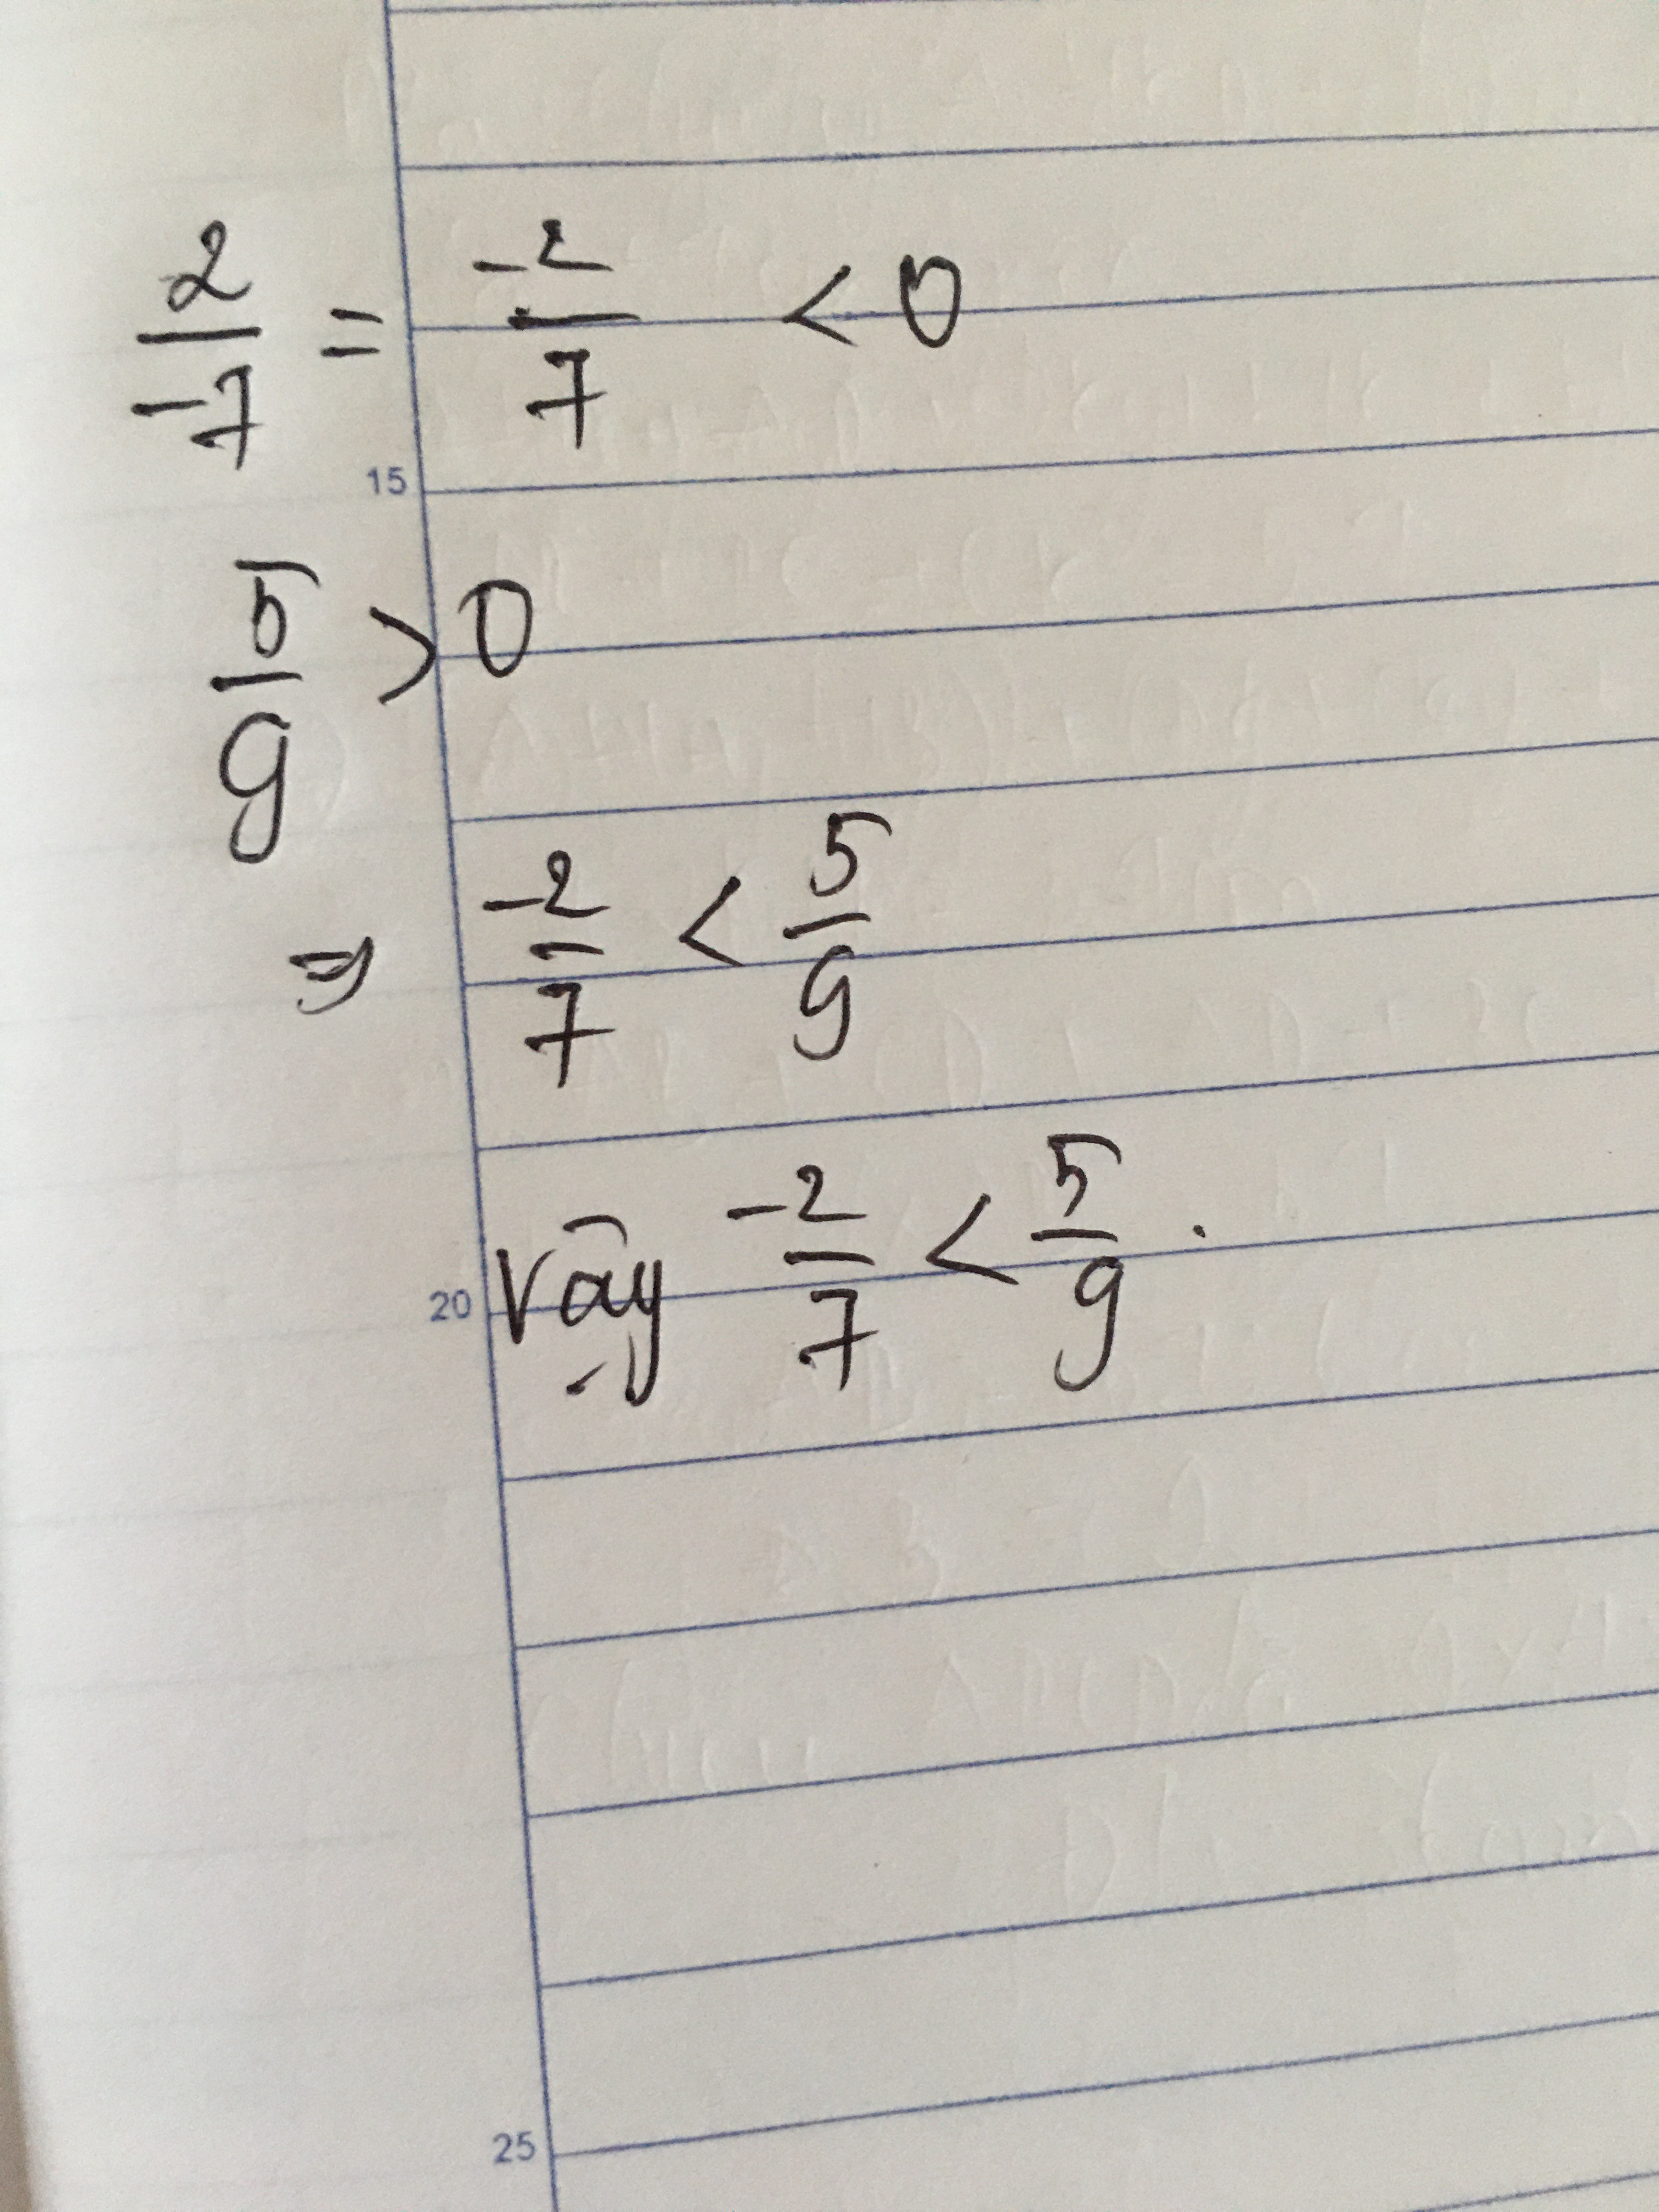 2/-7 = -2/7 < 0
15
5/9 > 0
⇒ -2/7 < 5/9
20 Vậy -2/7 < 5/9.
25